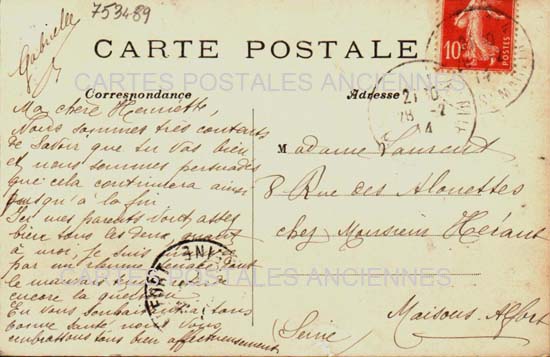 753489
Gabrielle
CARTE POSTALE
CARTES POSTALES ANCIENNES
Correspondance
Adresse
10c
POSTES
Ma chère Henriette,
Nous sommes très contents
de savoir que tu vas bien
et nous sommes persuadés
que cela continuera ainsi
jusqu'à la fin.
Ici mes parents vont assez
bien tous les deux, quant
à moi, je suis
par
le mauvais
encore la question.
En vous souhaitant à tous
bonne santé, nous vous
embrassons tous bien affectueusement
Madame Laurent
8 Rue des Alouettes
chez Monsieur Hérant
Maisons-Alfort
(Seine)
CARTES POSTALES ANCIENNES